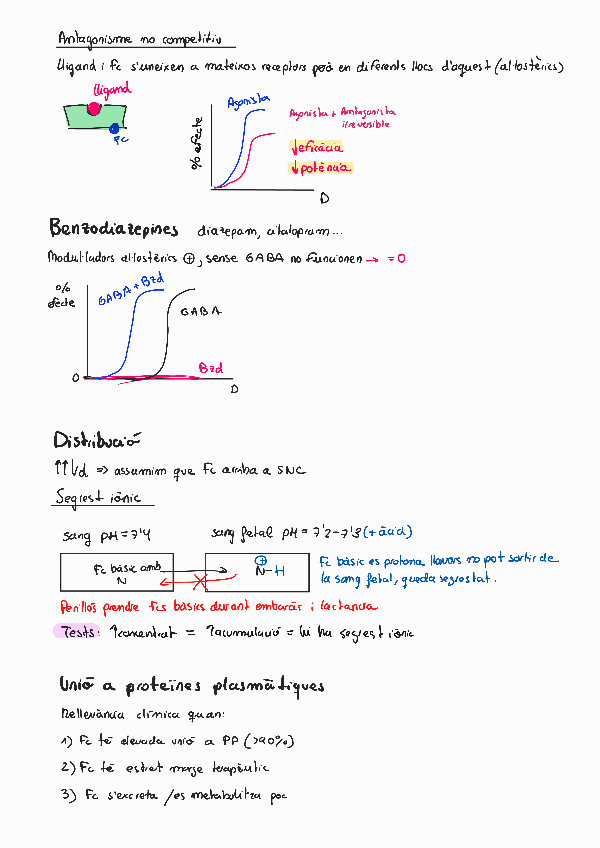 Antagonisme no competitiu
Lligand i Fc s'uneixen a mateixos receptors però en diferents llocs d'aquest (al·lostèrics)
Lligand
Fc
% efecte
Agonista
Agonista + Antagonista
irreversible
↓eficàcia
↓potència
D
Benzodiazepines diazepam, citalopram...
Moduladors al·lostèrics ⊕, sense GABA no funcionen → = 0
%
efecte
GABA + Bzd
GABA
Bzd
0
D
Distribució
↑↑Vd => assumim que Fc arriba a SNC
Segrest iònic
sang pH = 7'4
sang fetal pH = 7'2-7'3 (+ àcid)
Fc bàsic amb
N
⊕
N-H
Fc bàsic es protona llavors no pot sortir de
la sang fetal, queda segrestat.
Perillós prendre fcs bàsics durant embaràs i lactància
Tests: ↑concentrat = ↑acumulació = hi ha segrest iònic
Unió a proteïnes plasmàtiques
Rellevància clínica quan:
1) Fc té elevada unió a PP (>90%)
2) Fc té estret marge terapèutic
3) Fc s'excreta /es metabolitza poc